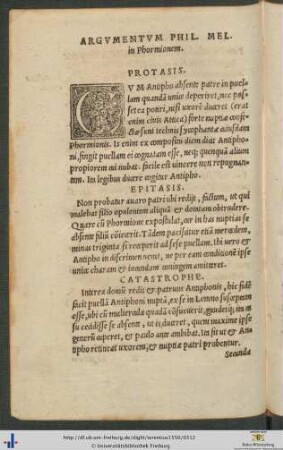 ARGVMENTVM PHIL. MEL.
in Phormionem.
PROTASIS.
CVM Antipho absente patre in puel
lam quandã unicè deperiret, nec pos
set ea potiri, nisi uxorẽ duceret (erat
enim civis Attica) fortè nuptiæ confi
ctæ sunt technis sycophantæ cuiusdam
Phormionis. Is enim ex composito diem dicit Antipho
ni, fingit puellam ei cognatam esse, neq; quenquã alium
propiorem cui nubat. facilè sit uincere non repugnan-
tem. Ita legibus ducere cogitur Antipho.
EPITASIS.
Non probatur auaro patri ubi redijt, factum, ut qui
malebat filio opulentem aliquã & dotatam obtrudere.
Quare cũ Phormione expostulat, cur in has nuptias se
absente filiũ coiecerit. Tãdem paciscatur etiã mercedem,
minas triginta si receperit ad sese puellam. Ibi uero &
Antipho in discrimen uenit, ne per eam conditionẽ ipse
unicè charam & iucundam coniugem amitteret.
CATASTROPHE.
Interea domũ redit & patruus Antiphonis, hic fidẽ
facit puellã Antiphoni nuptã, ex se in Lemno susceptam
esse, ubi cũ muliercula quadã cõsueuerit, gaudetq; im
se absente, ut is duceret, quem maximè ipse
generũ cuperet, & paulo antè ambibat. Ita fit ut & An
tipho retineat uxorem, & nuptiæ patri probentur.
Secunda
http://dl.ub.uni-freiburg.de/diglit/terentius1550/0312
© Universitätsbibliothek Freiburg
Baden-Württemberg